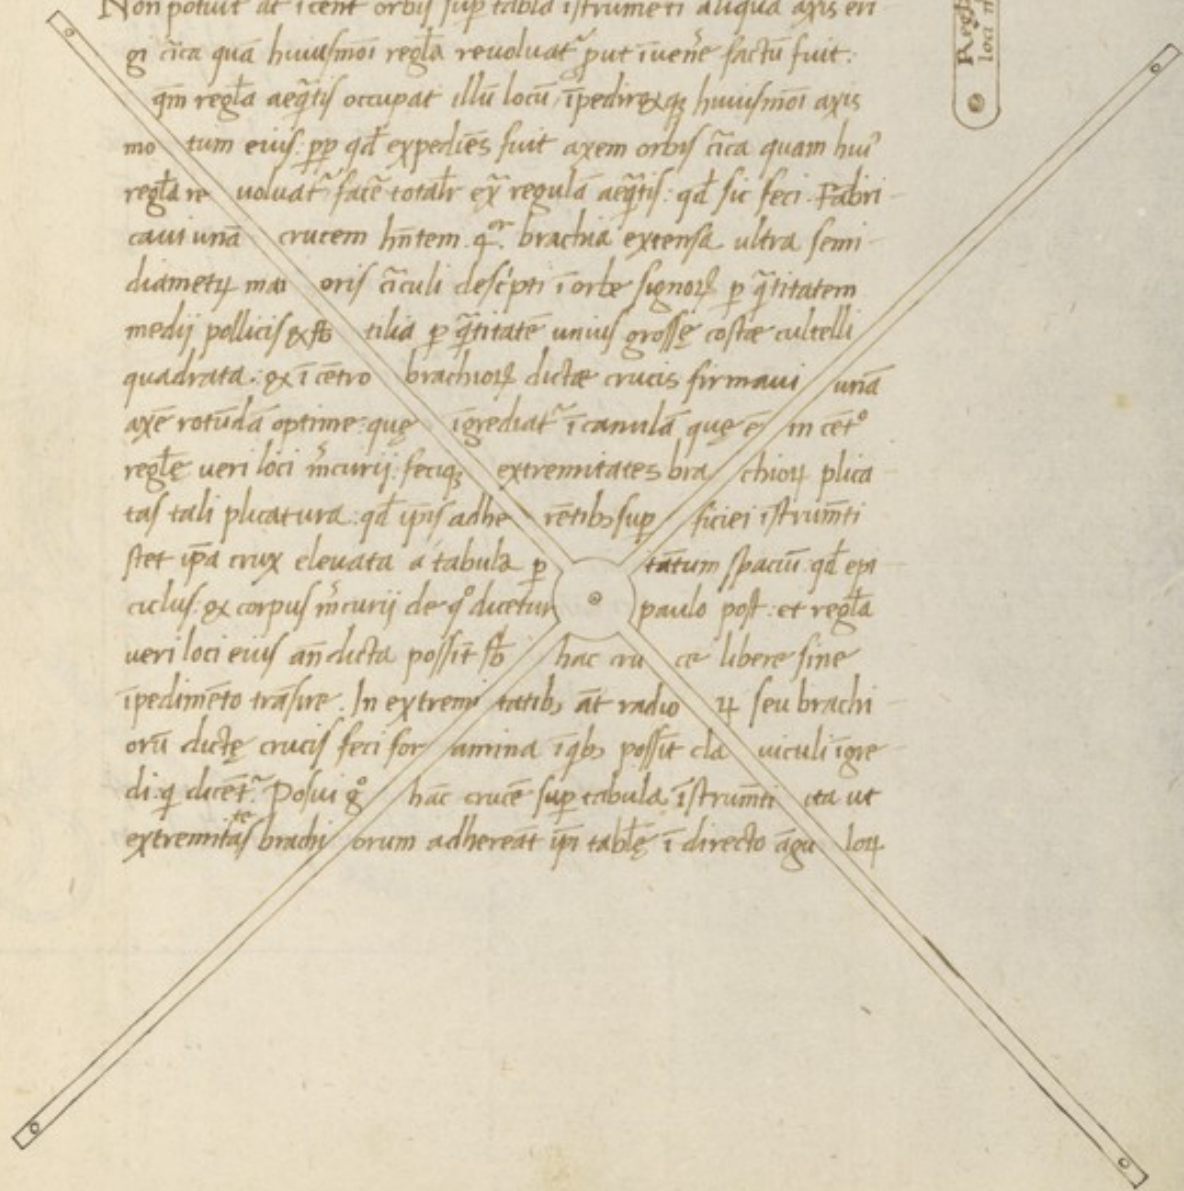 Non potuit at ī cent orbis sup tabla īstrumēti aliqua axis eri
gi c̄ica quā huiusmōi regl̄a reuoluat᷑ put īuen̄e factū fuit.
qm̄ regl̄a aeq̄tis occupat illū locū, īpediretq; huiusmōi axis
mo tum eius: pp qd̄ expediēs fuit axem orbis c̄ica quam hui᷒
regl̄a re uoluat᷑ facē totalr ex regula aeq̄tis: qd̄ sic feci. Fabri
caui unā crucem hn̄tem .4or. brachia extensa ultra semi
diametꝝ mai oris c̄iculi desc̍pti ī orbe signoꝝ p q̄titatem
medij pollicis & sb tilia p q̄titatē unius grossę costæ cultelli
quadrata: & ī cētro brachioꝝ dictæ crucis firmaui unā
axē rotūdā optime: quę īgrediat᷑ ī canulā quę ē in cēto
reglę ueri loci m̄curij: feciq; extremitates bra chioꝝ plica
tas tali plicatura: qd̄ ip̄is adhe rētibȝ sup ficiei īstrum̄ti
stet ip̄a crux eleuata a tabula p tātum spaciū: qd̄ epi
ciclus: & corpus m̄curij de qo dicetur paulo post: et regl̄a
ueri loci eius an̄dicta possit sb hac cru ce libere sine
īpedimēto trāsire. In extremi tatibȝ āt radio ꝝ seu brachi
orū dictę crucis feci for amina ī qbȝ possīt cla uiculi īgre
di: q dicēt᷑. Posui go hāc crucē sup tabula īstrum̄ti ita ut
extremitates brachi orum adhereāt ip̄i tablę ī directo āgu loꝝ
Regl̄
loci m